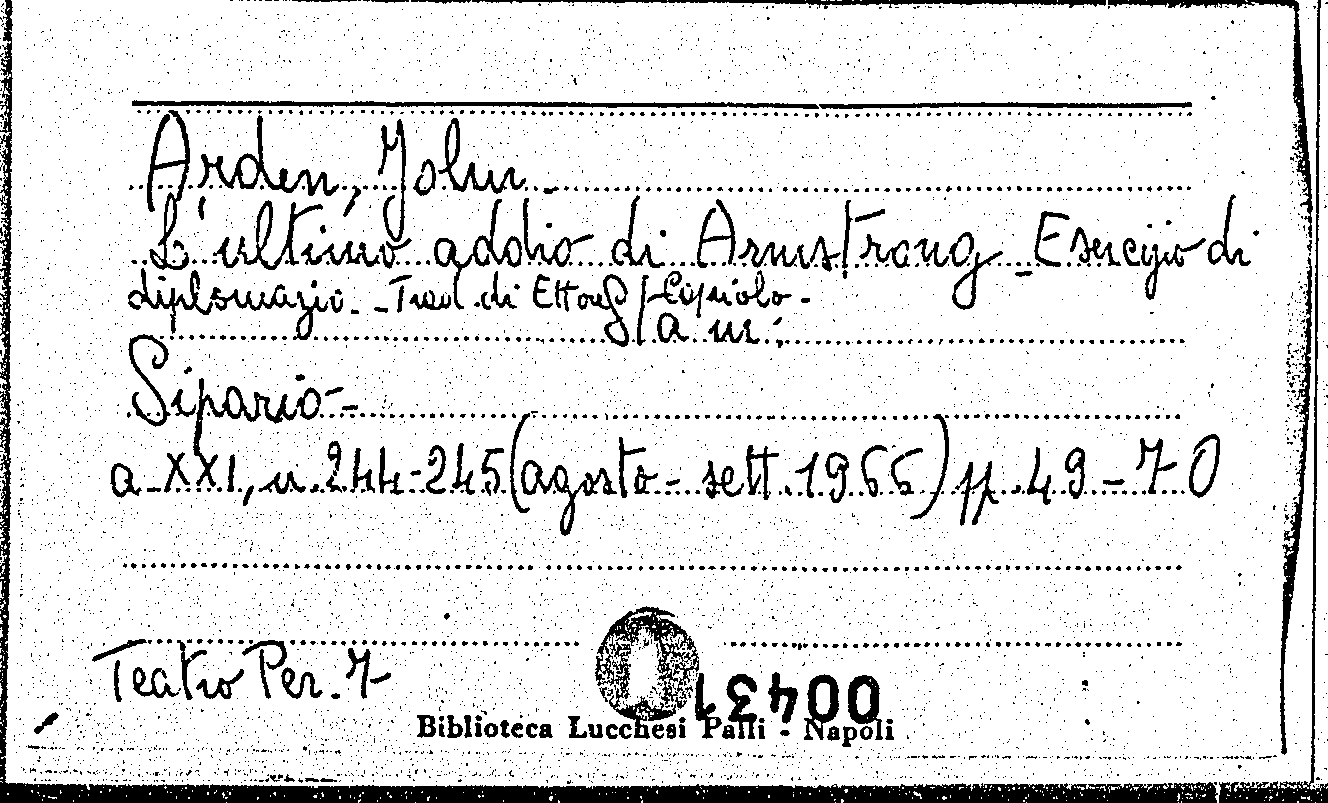 Arden, John.
L'ultimo addio di Armstrong - Esercizio di
diplomazia. - Trad. di Ettore Capriolo -
a in:
Sipario -
a. XXI, n. 244-245 (agosto - sett. 1966) pp. 49 - 70
Teatro Per. 7
00431
Biblioteca Lucchesi Palli - Napoli